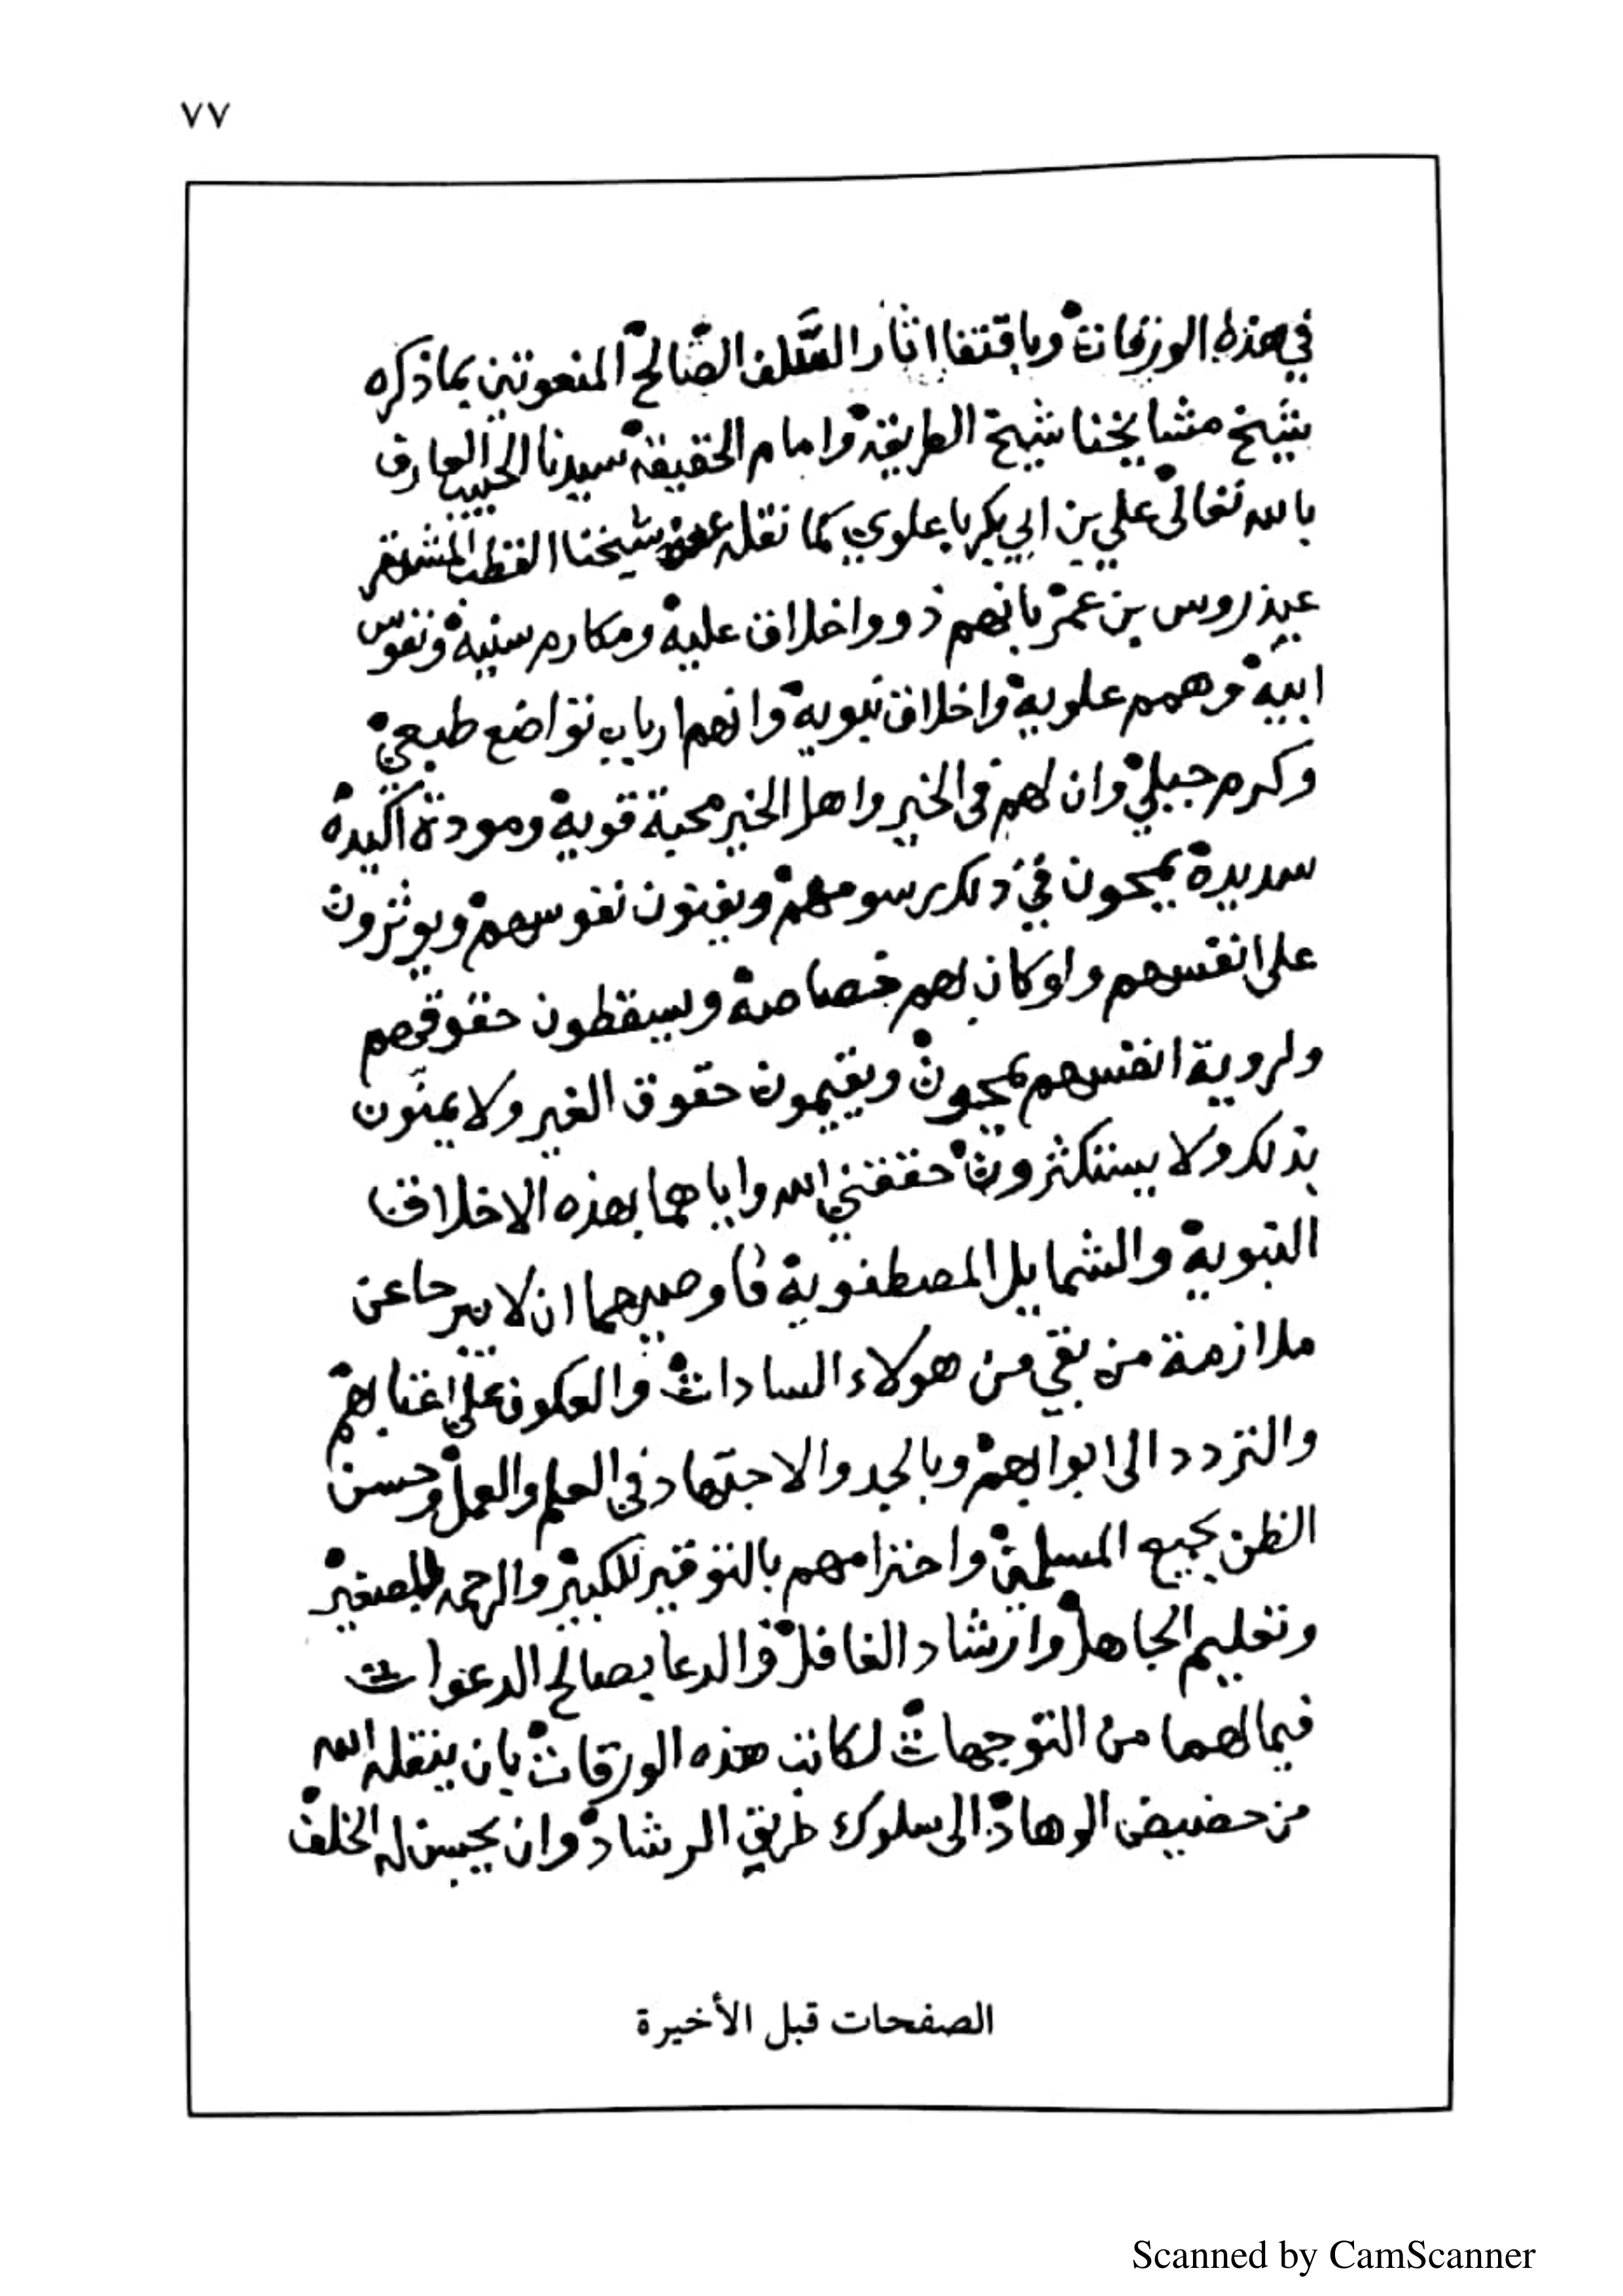 ٧٧
في هذه الورقات وباقتفا اثار السَّلف الصَّالح المنعوتين بما ذكره
شيخ مشايخنا شيخ الطريقة وامام الحقيقة سيدنا الحبيب العارف
بالله تعالى علي بن ابي بكر باعلوي كما نقله عنه شيخنا القطب
عيدروس بن عمر بانهم ذوو اخلاق علية ومكارم سنية ونفوس
ابيَّة وهمم علوية واخلاق نبوية وانهم ارباب تواضع طبعي
وكرم جبلي وان لهم في الخير واهل الخير محبة قوية ومودة اكيدة
سديدة يمحون في ذلك رسومهم ويفنون نفوسهم ويوثرون
على انفسهم ولو كان بهم خصاصة ويسقطون حقوقهم
ولروية انفسهم يمحون ويقيمون حقوق الغير ولا يمنّون
بذلك ولا يستكثرون حققني الله واياهما بهذه الاخلاق
النبوية والشمايل المصطفوية فاوصيهما ان لا يبرحا عن
ملازمة من بقي من هولاء السادات والعكوف على اعتابهم
والتردد الى ابوابهم وبالجد والاجتهاد في العلم والعمل وحسن
الظن بجميع المسلمين واحترامهم بالتوقير للكبير والرحمة للصغير
وتعليم الجاهل وارشاد الغافل والدعا بصالح الدعوات
فيما لهما من التوجهات لكاتب هذه الورقات بان ينقله الله
من حضيض الوهاد الى سلوك طريق الرشاد وان يحسن له الخلف
الصفحات قبل الأخيرة
Scanned by CamScanner